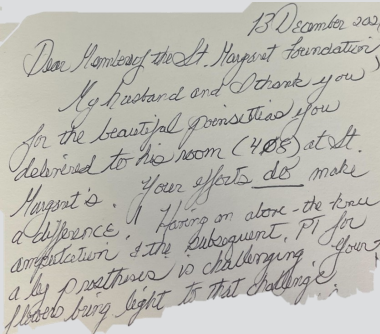 13 December 202
Dear Members of the St. Margaret Foundation
My husband and I thank you
for the beautiful poinsettias you
delivered to his room (408) at St.
Margaret's. Your efforts do make
a difference! Having an above-the-knee
amputation & the subsequent PT for
a leg prosthesis is challenging. Your
flowers bring light to that challenge.